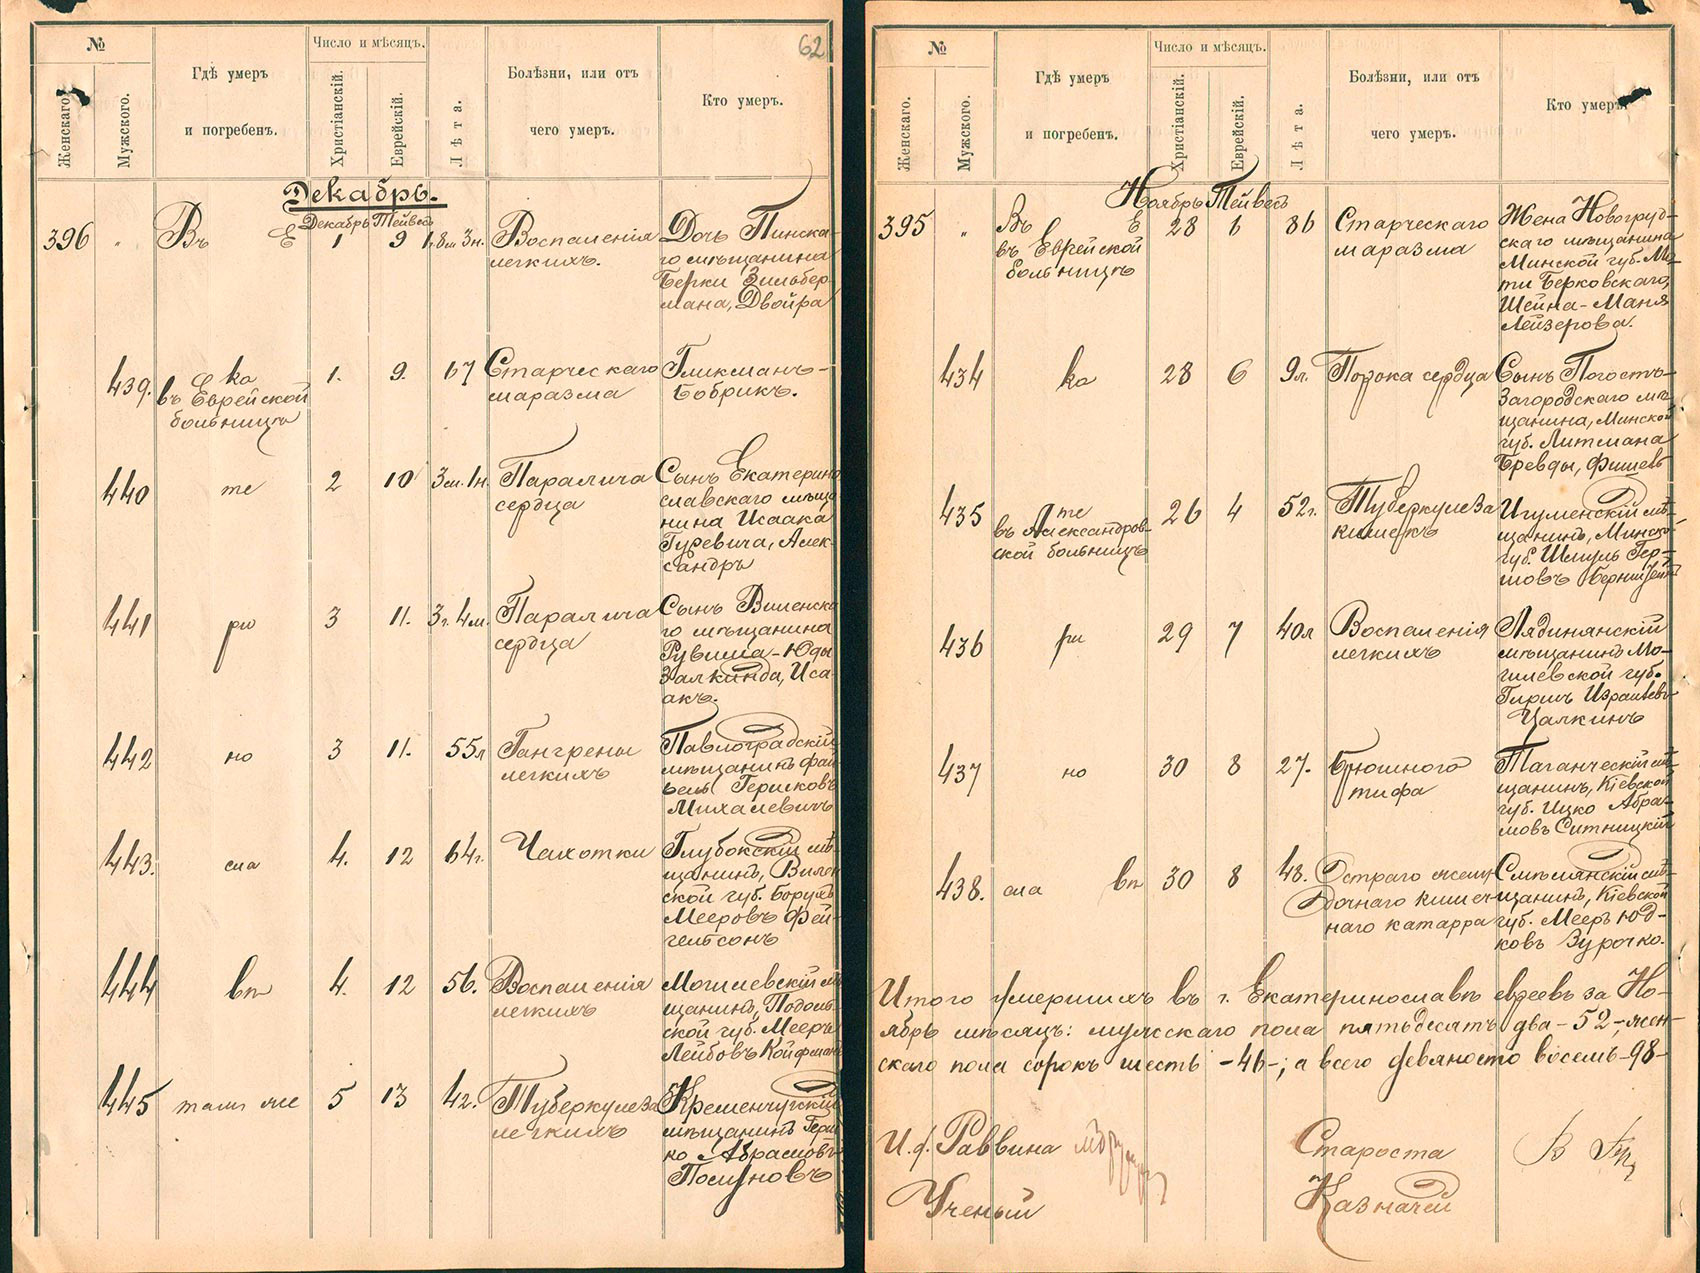 62
№
Число и мѣсяцъ.
Женскаго.
Мужскаго.
Гдѣ умеръ
и погребенъ.
Христіанскій.
Еврейскій.
Лѣта.
Болѣзни, или отъ
чего умеръ.
Кто умеръ.
Декабрь.
Декабрь Тейвесъ
396 " Въ Е 1 9 Воспаленія
легкихъ.
Дочь Пинска-
го мѣщанина
Берки Зильбер-
мана, Двойра
439. Е ка
въ Еврейской
больницѣ
1. 9. 67 Старческаго
маразма
Гликманъ-
Бобрикъ.
440 те 2 10 3 м. 1 н. Паралича
сердца
Сынъ Екатерино
славскаго мѣща
нина Исаака
Гуревича, Алек-
сандръ
441 ри 3 11. 3 г. 4 м. Паралича
сердца
Сынъ Виленска
го мѣщанина
Рувима-Юды
Залкинда, Иса-
акъ.
442 но 3 11. 55 л Гангрены
легкихъ
Павлоградскій
мѣщанинъ Фай
вель Гершковъ
Михалевичъ
443. сла 4. 12 64 г. Чахотки
Глубокскій мѣ-
щанинъ, Вилен
ской губ. Борухъ
Мееровъ Фей-
гельсонъ
444 вѣ 4. 12 56. Воспаленія
легкихъ
Могилевскій мѣ
щанинъ, Подоль
ской губ. Мееръ
Лейбовъ Койфман
445 тамъ же 5 13 42. Туберкулеза
легкихъ
Кременчугскій
мѣщанинъ Герш
ко Абрамовъ
Посуновъ
№
Число и мѣсяцъ.
Женскаго.
Мужскаго.
Гдѣ умеръ
и погребенъ.
Христіанскій.
Еврейскій.
Лѣта.
Болѣзни, или отъ
чего умеръ.
Кто умеръ.
Ноябрь Тейвесъ
395 " Въ Е
въ Еврейской
больницѣ
28 6 86 Старческаго
маразма
Жена Новогруд-
скаго мѣщанина
Минской губ. Мо-
ти Берковскаго,
Шейна-Маня
Лейзерова.
434 ка 28 6 9 л. Порока сердца
Сынъ Погостъ-
Загородскаго мѣ
щанина, Минской
губ. Литмана
Бревды, Фишель
435 те
въ Александров-
ской больницѣ
26 4 52 г. Туберкулеза
кишекъ
Игуменскій мѣ-
щанинъ, Минской
губ. Шмуль Гер-
шовъ
436 ри 29 7 40 л Воспаленія
легкихъ
Лядинянскій
мѣщанинъ Мо-
гилевской губ.
Гиршъ Израилевъ
Цалкинъ
437 но 30 8 27. Брюшного
тифа
Таганческій мѣ-
щанинъ, Кіевской
губ. Ицко Абра-
мовъ Ситницкій
438. сла вѣ 30 8 48. Остраго желу-
дочнаго кишеч-
наго катарра
Смѣлянскій мѣ-
щанинъ, Кіевской
губ. Мееръ Юд-
ковъ Зурочко.
Итого умершихъ въ г. Екатеринославѣ евреевъ за Но-
ябрь мѣсяцъ: мужскаго пола пятьдесятъ два - 52 -, жен-
скаго пола сорокъ шесть - 46 -; а всего девяносто восемь - 98 -
И. ф. Раввина
Староста
Ученый
Казначей